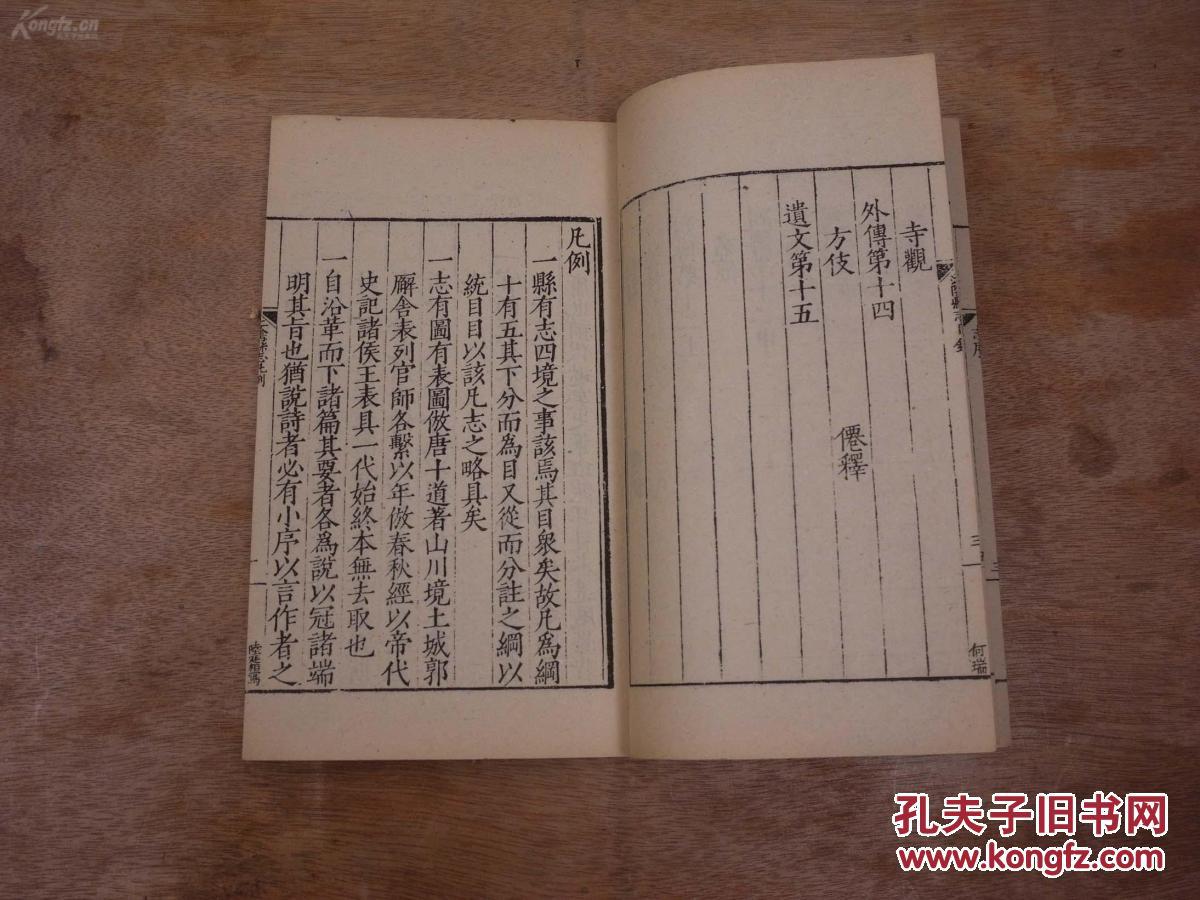 寺觀
外傳第十四
方伎 僊釋
遺文第十五
何瑞
凡例
一縣有志四境之事該焉其目衆矣故凡爲綱
十有五其下分而為目又從而分註之綱以
統目目以該凡志之略具矣
一志有圖有表圖倣唐十道著山川境土城郭
廨舍表列官師各繫以年倣春秋經以帝代
史記諸侯王表具一代始終本無去取也
一自沿革而下諸篇其要者各爲說以冠諸端
明其旨也猶說詩者必有小序以言作者之
Kongfz.cn
孔夫子旧书网
www.kongfz.com